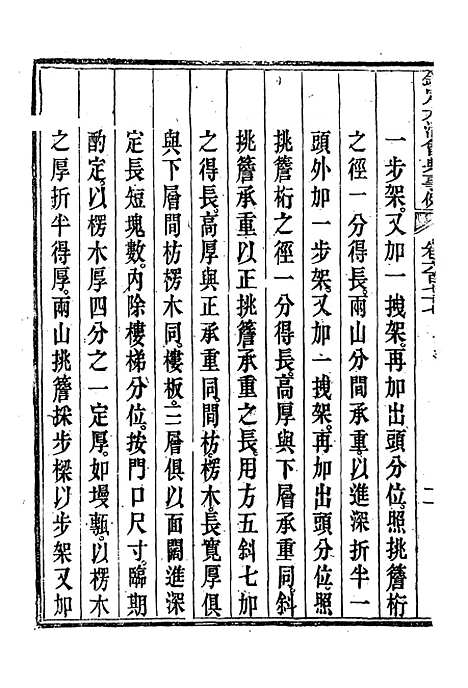 欽定大清會典事例
一步架。又加一拽架。再加出頭分位。照挑簷桁
之徑一分得長。兩山分間承重。以進深折半一
頭外加一步架。又加一拽架。再加出頭分位。照
挑簷桁之徑一分得長。高厚與下層承重同。斜
挑簷承重以正挑簷承重之長。用方五斜七加
之得長。高厚與正承重同。間枋。楞木。長寬厚俱
與下層間枋楞木同。樓板。三層俱以面闊進深
定長短塊數。內除樓梯分位。按門口尺寸。臨期
酌定。以楞木厚四分之一定厚。如墁甎。以楞木
之厚折半得厚。兩山挑簷採步樑以步架又加